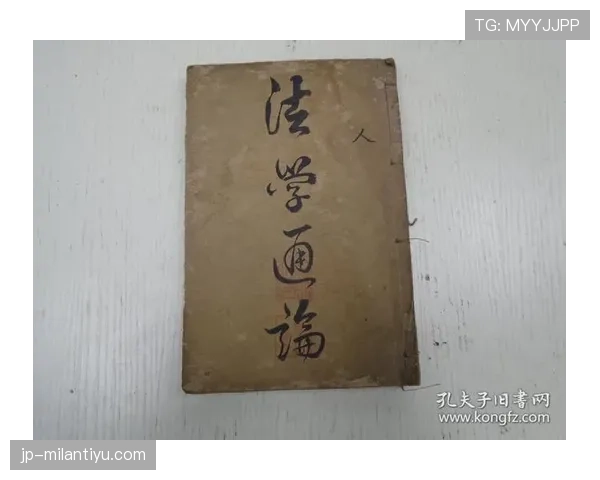 TG: MYYJJPP
法学通論
人
孔夫子旧书网
www.kongfz.com
jp-milantiyu.com